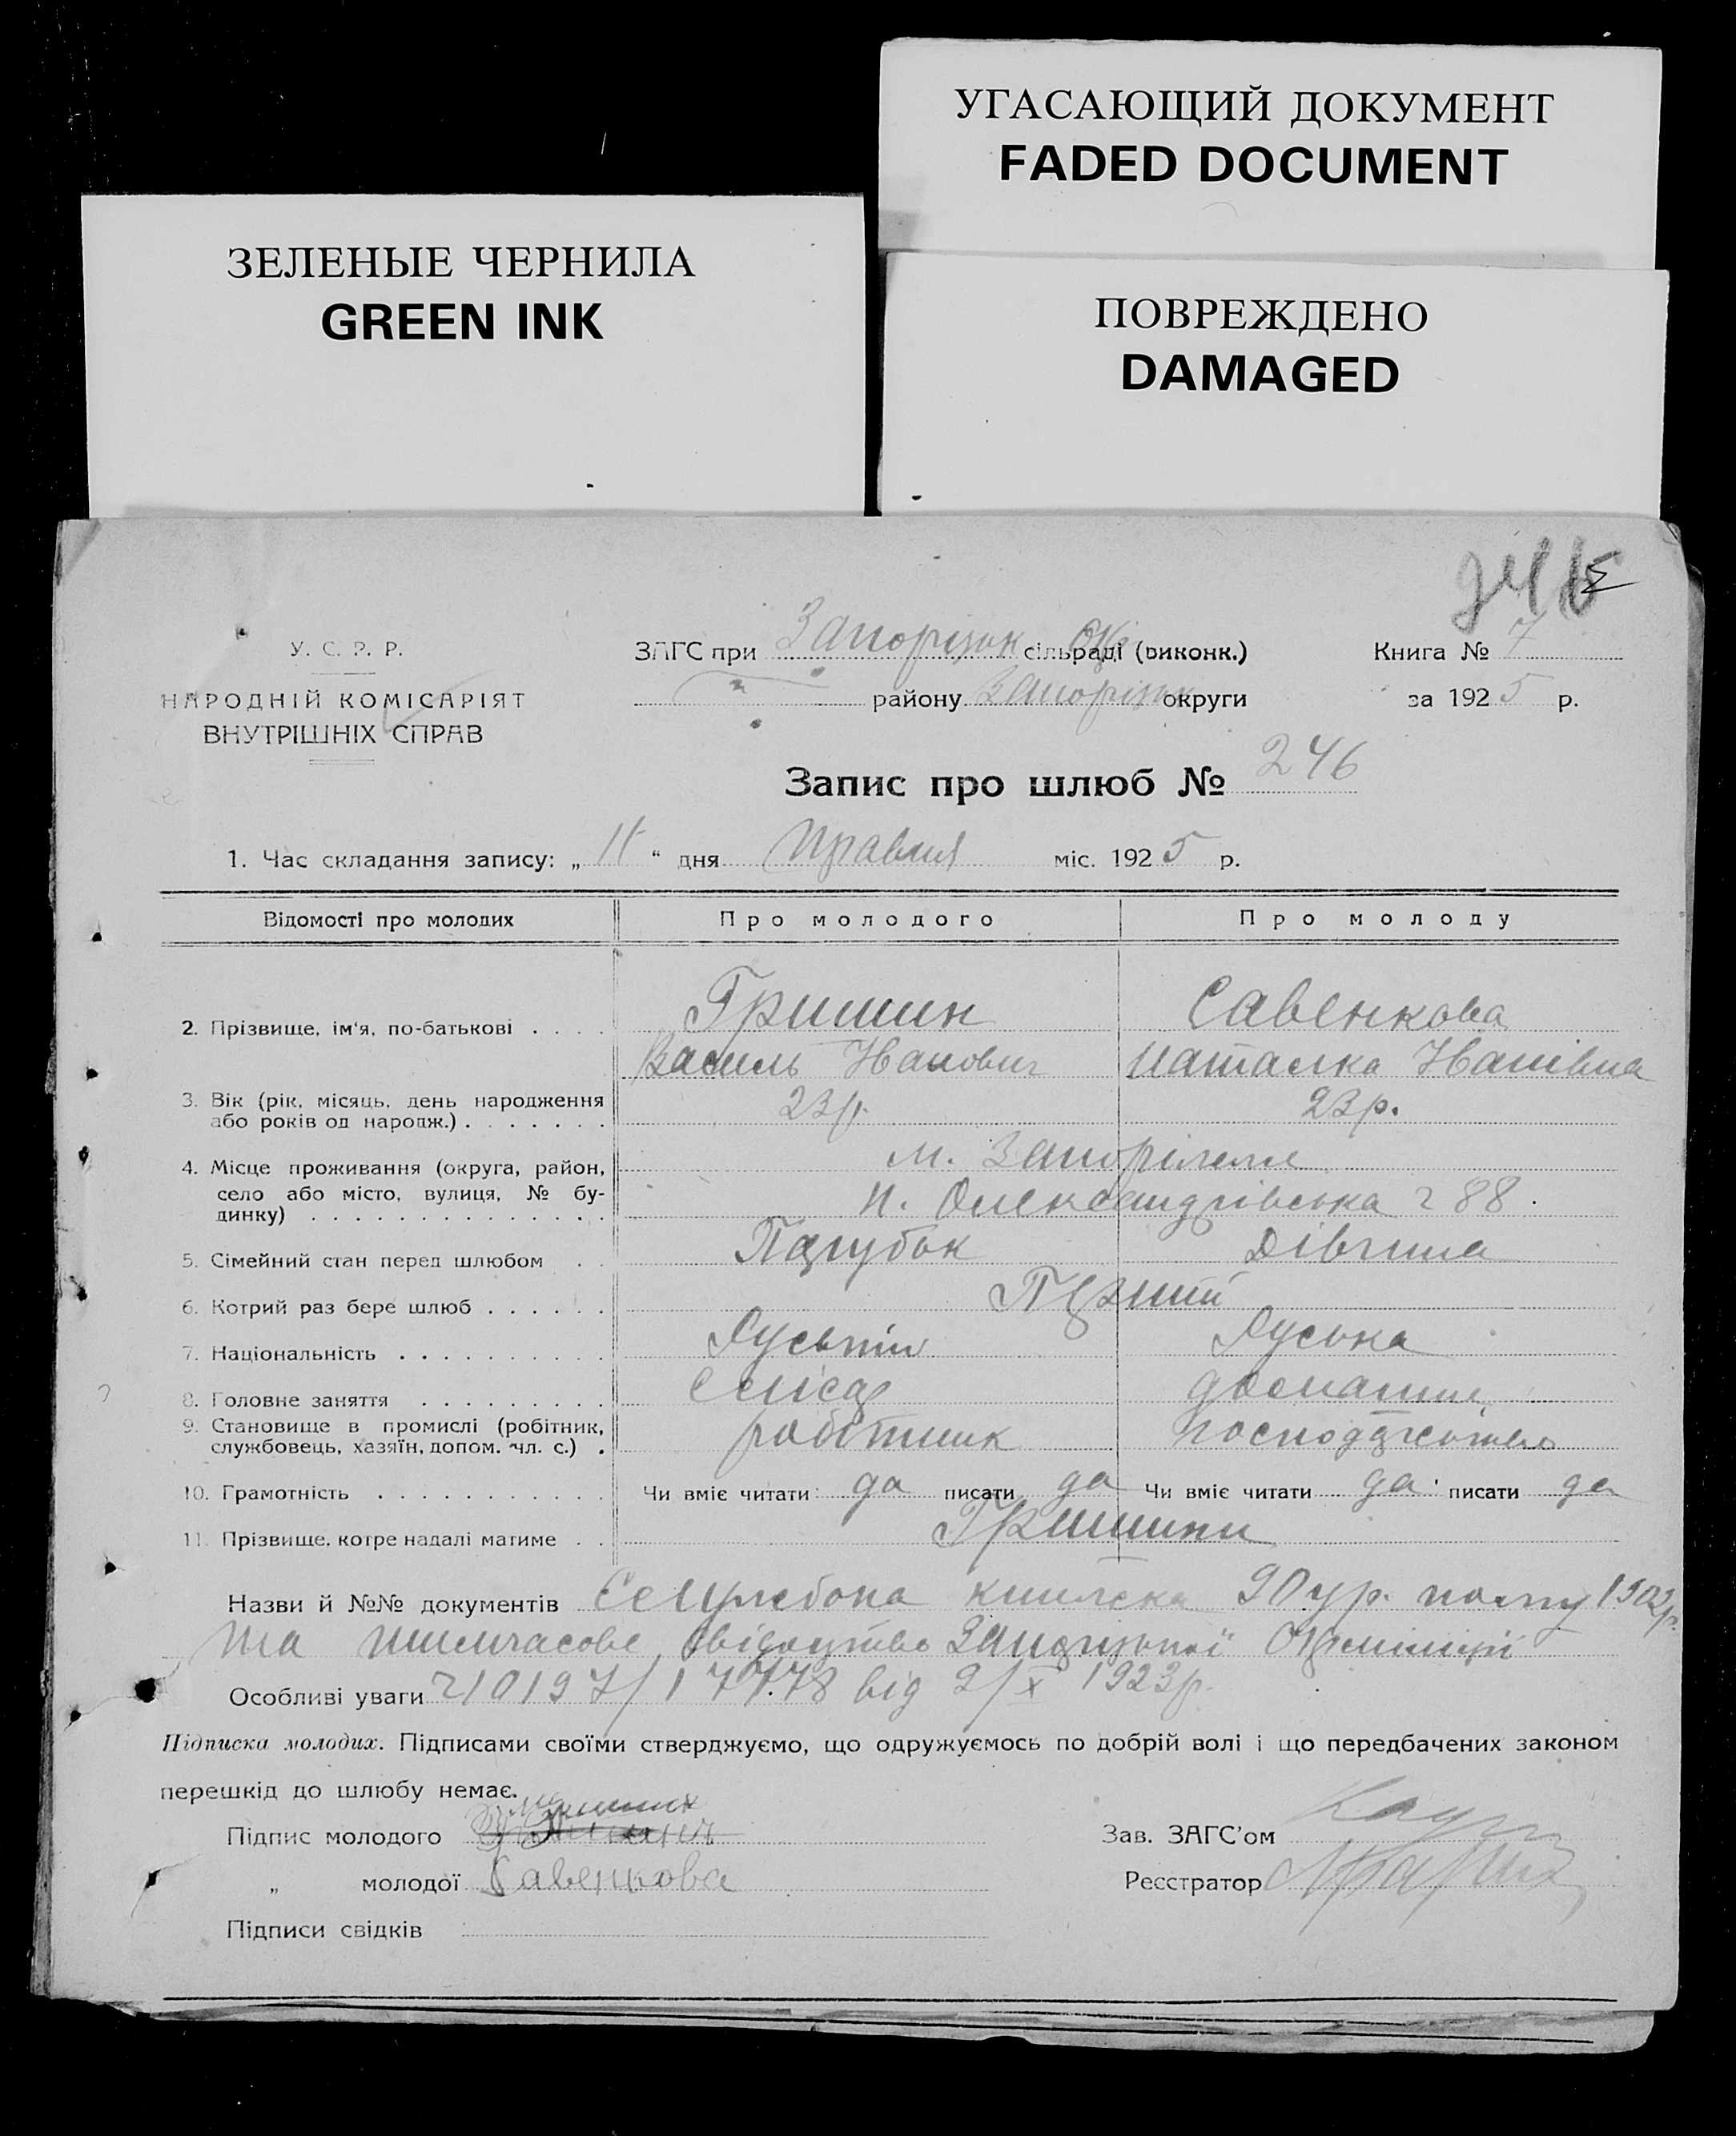 УГАСАЮЩИЙ ДОКУМЕНТ
FADED DOCUMENT
ЗЕЛЕНЫЕ ЧЕРНИЛА
GREEN INK
ПОВРЕЖДЕНО
DAMAGED
У. С. Р. Р.
НАРОДНІЙ КОМІСАРІЯТ
ВНУТРІШНІХ СПРАВ
ЗАГС при Запорізьк сільраді (виконк.)
району Запорізьк округи
Книга № 7
за 1925 р.
Запис про шлюб № 246
1. Час складання запису: „ 11 “ дня травня міс. 1925 р.
Відомості про молодих Про молодого Про молоду
2. Прізвище, ім'я, по-батькові Гришин Савенкова
Василь Іванович Наталка Іванівна
3. Вік (рік, місяць, день народження або років од народж.) 23 р. 23 р.
4. Місце проживання (округа, район, м. Запоріжжя
село або місто, вулиця, № будинку) Олександрівська 88
5. Сімейний стан перед шлюбом Парубок Дівчина
6. Котрий раз бере шлюб Перший
7. Національність Руський Руська
8. Головне заняття Слюсар домашнє
9. Становище в промислі (робітник, службовець, хазяїн, допом. чл. с.) робітник господарство
10. Грамотність Чи вміє читати да писати да Чи вміє читати да писати да
11. Прізвище, котре надалі матиме Гришини
Назви й №№ документів Службова книжка 90 полку
та тимчасове свідоцтво Запорізької Окрміліції
Особливі уваги від 2/X 1923 р.
Підписка молодих. Підписами своїми стверджуємо, що одружуємось по добрій волі і що передбачених законом
перешкід до шлюбу немає.
Підпис молодого Гришин
Зав. ЗАГС'ом
„ молодої Савенкова
Реєстратор
Підписи свідків